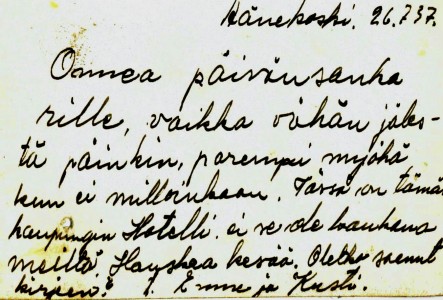 Äänekoski. 26.7.37.
Onnea päivänsanka
rille, vaikka vähän jäles-
tä päinkin, parempi myöhä
kun ei milloinkaan. Tässä on tämän
kaupungin Hotelli. ei se ole kaukana
meiltä. Hauskaa kesää. Oletko saanut
kirjeen? Emme ja Kusti.